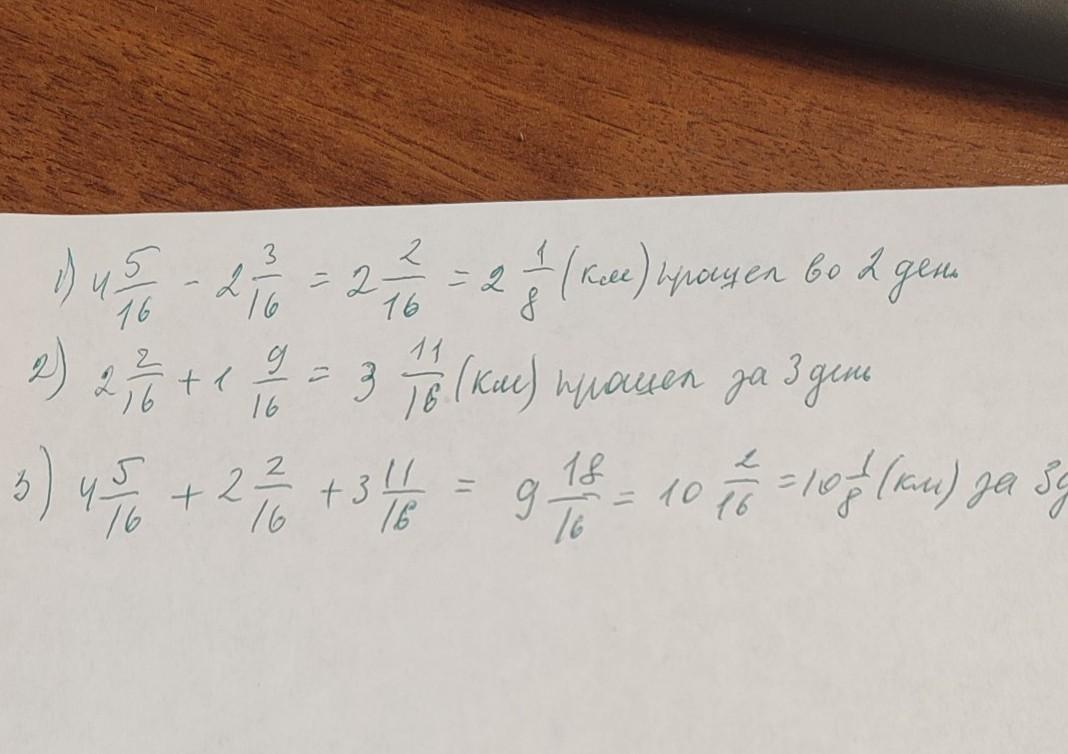 1) 4 5/16 - 2 3/16 = 2 2/16 = 2 1/8 (км) прошел во 2 день
2) 2 2/16 + 1 9/16 = 3 11/16 (км) прошел за 3 день
3) 4 5/16 + 2 2/16 + 3 11/16 = 9 18/16 = 10 2/16 = 10 1/8 (км) за 3д